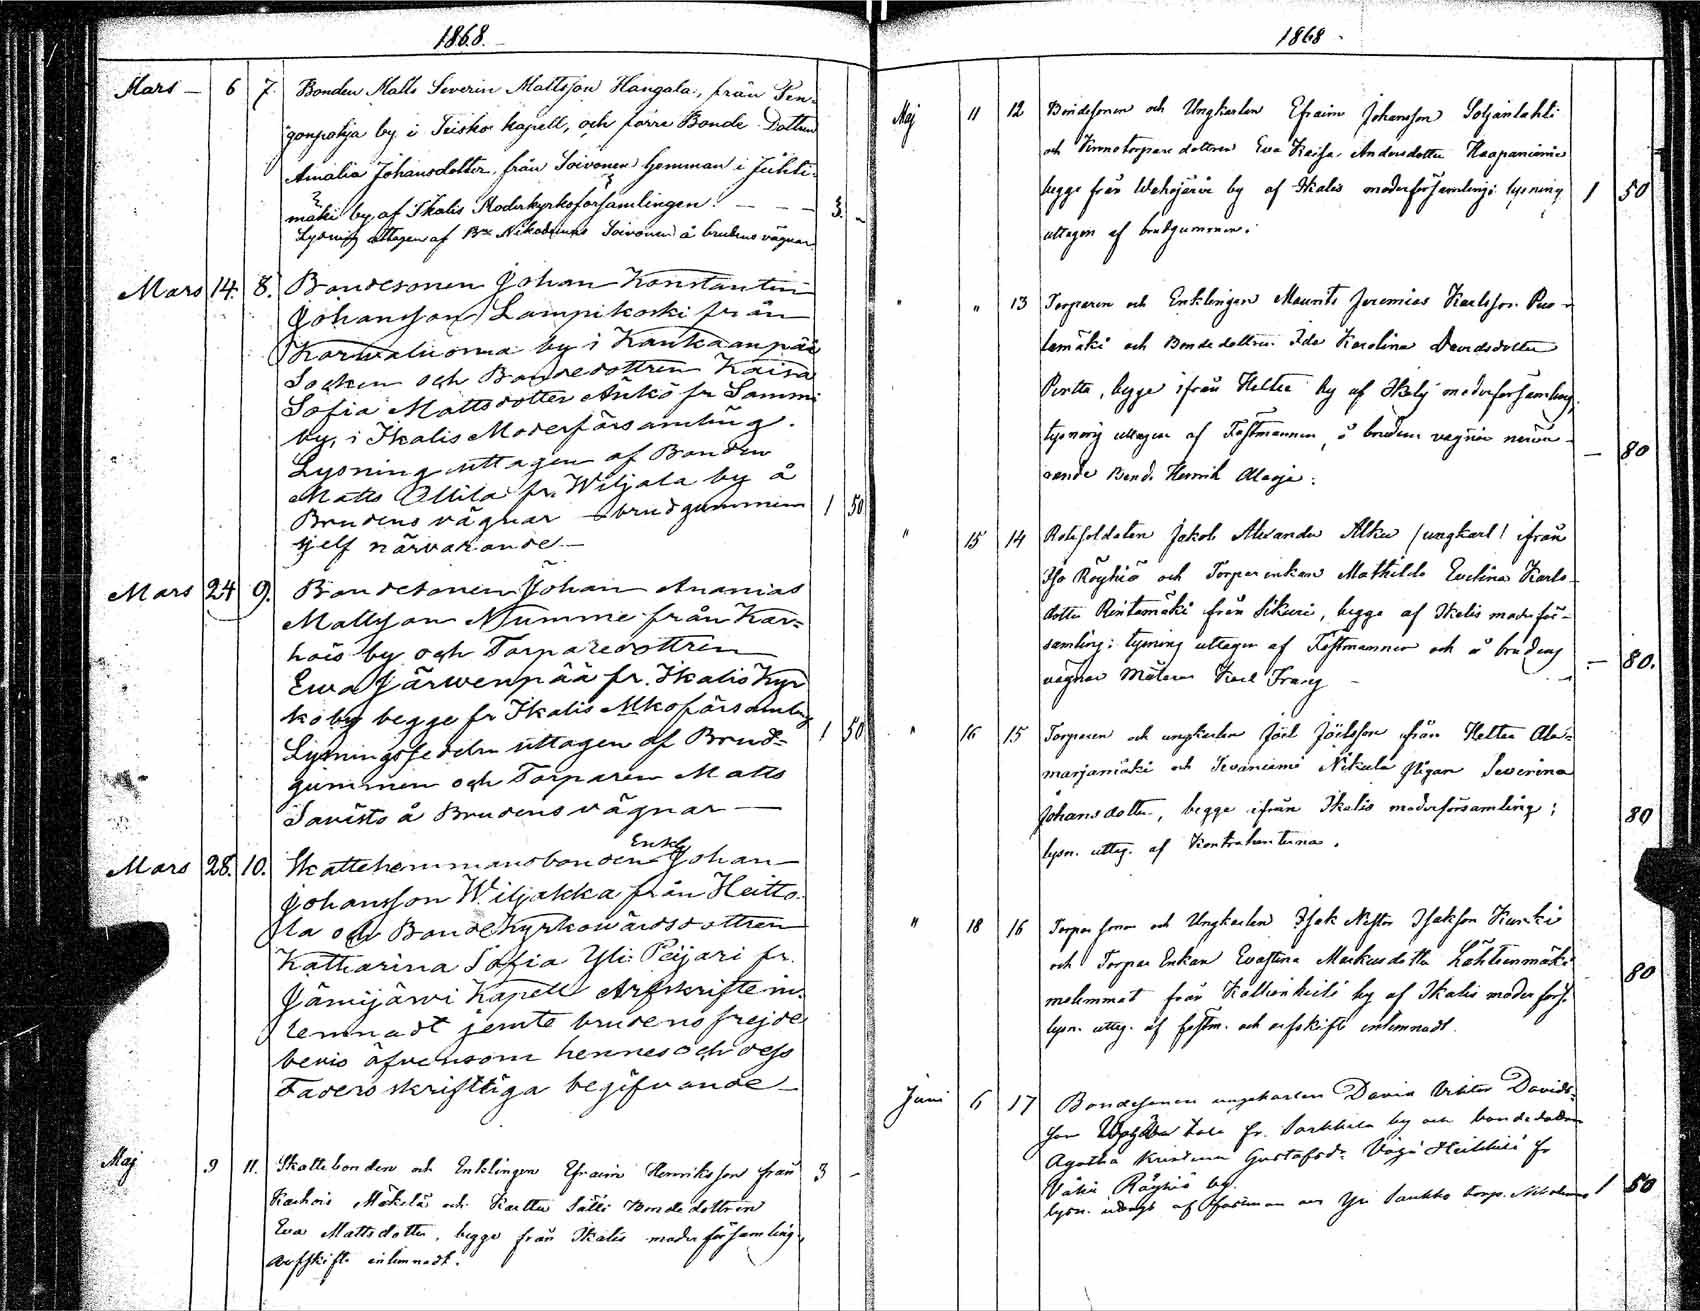 1868.
Mars — 6 7. Bonden Matts Severin Mattsson Hangala, från
by i Teisko kapell, och förre Bonde Dottren
Amalia Johansdotter, från Soivonen hemman i Juhti-
mäki by, af Ikalis Moderkyrkoförsamlingen. — — — 3. —
Lysning uttagen af Nikodemus Soivonen å brudens vägnar
Mars 14. 8. Bondesonen Johan Konstantin
Johansson Lampikoski från
Karwaluoma by i Kankaanpää
Socken och Bondedottren Kaisa
Sofia Mattsdotter fr Sammi
by, i Ikalis Moderförsamling.
Lysning uttagen af Bonden
Matts Ollila fr. Wiljala by å
Brudens vägnar — brudgummen 1 50
sjelf närvarande —
Mars 24 9. Bondesonen Johan Ananias
Mattsson Nummi från Kar-
hois by och Torparedottren
Ewa Järwenpää fr. Ikalis Kyr
koby begge fr Ikalis Mkoförsamling
Lysningssedeln uttagen af Brud- 1 50
gummen och Torparen Matts
Savisto å Brudens vägnar —
Mars 28. 10. Skattehemmansbonden Enkl Johan
Johansson Wiljakka från Heitto-
la och Bonde Kyrkowärdsdottren
Katharina Sofia Yli-Peijari fr.
Jämijärwi Kapell Arfskifte in-
lemnadt jemte brudens frejde
bevis äfvensom hennes och dess
Faders skriftliga begifvande —
Maj 9 11. Skattebonden och Enklingen Efraim Henriksson från 3 —
Karhois Mäkelä och Karttu Sätti Bondedottren
Eva Mattsdotter, begge från Ikalis moderförsamling,
arfskifte inlemnadt.
1868
Maj 11 12 Bondesonen och Ungkarlen Efraim Johansson Soljanlahti
och dottren Eva Kaisa Andersdotter Haapaniemi
begge från by af Ikalis moderförsamling: lysning 1 50
uttagen af brudgummen.
" " 13 Torparen och Enklingen Maurits Jeremias Karlsson Puo-
lamäki och Bondedottren Ida Karolina Davidsdotter
Perttu, begge ifrån Heltee by af moderförsamling,
lysning uttagen af Fästmannen, å brudens vägnar närva- — 80
rande Bond. Henrik
" 15 14 Rotesoldaten Jakob Alexander Alku /ungkarl/ ifrån
Iso Röyhiö och Torparenkan Mathilda Evelina Karls-
dotter Rintamäki från Sikuri, begge af Ikalis moderför-
samling: lysning uttagen af Fästmannen och å brudens — 80.
vägnar Karl
" 16 15 Torparen och ungkarlen Joel Joelsson från Heltee Ala-
marjamäki och Nikula Pigan Severina
Johansdotter, begge ifrån Ikalis moderförsamling; 80
lysn. uttag. af Kontrahenterna.
" 18 16 Torparsonen och Ungkarlen Isak Nestor Isaksson Kurki
och Torpar Enkan Evastina Markusdotter Lähteenmäki 80
från by af Ikalis moderförs.
lysn. uttag. af fästm. och arfskifte inlemnadt.
Juni 6 17 Bondesonen ungkarlen David Viktor Davids-
son fr. Sarkkila by och bondedottren
Agatha Kristina Gustafsdr. Heikkilä fr
Röyhiö by.
lysn. af fästman och Yri torp. 1 50